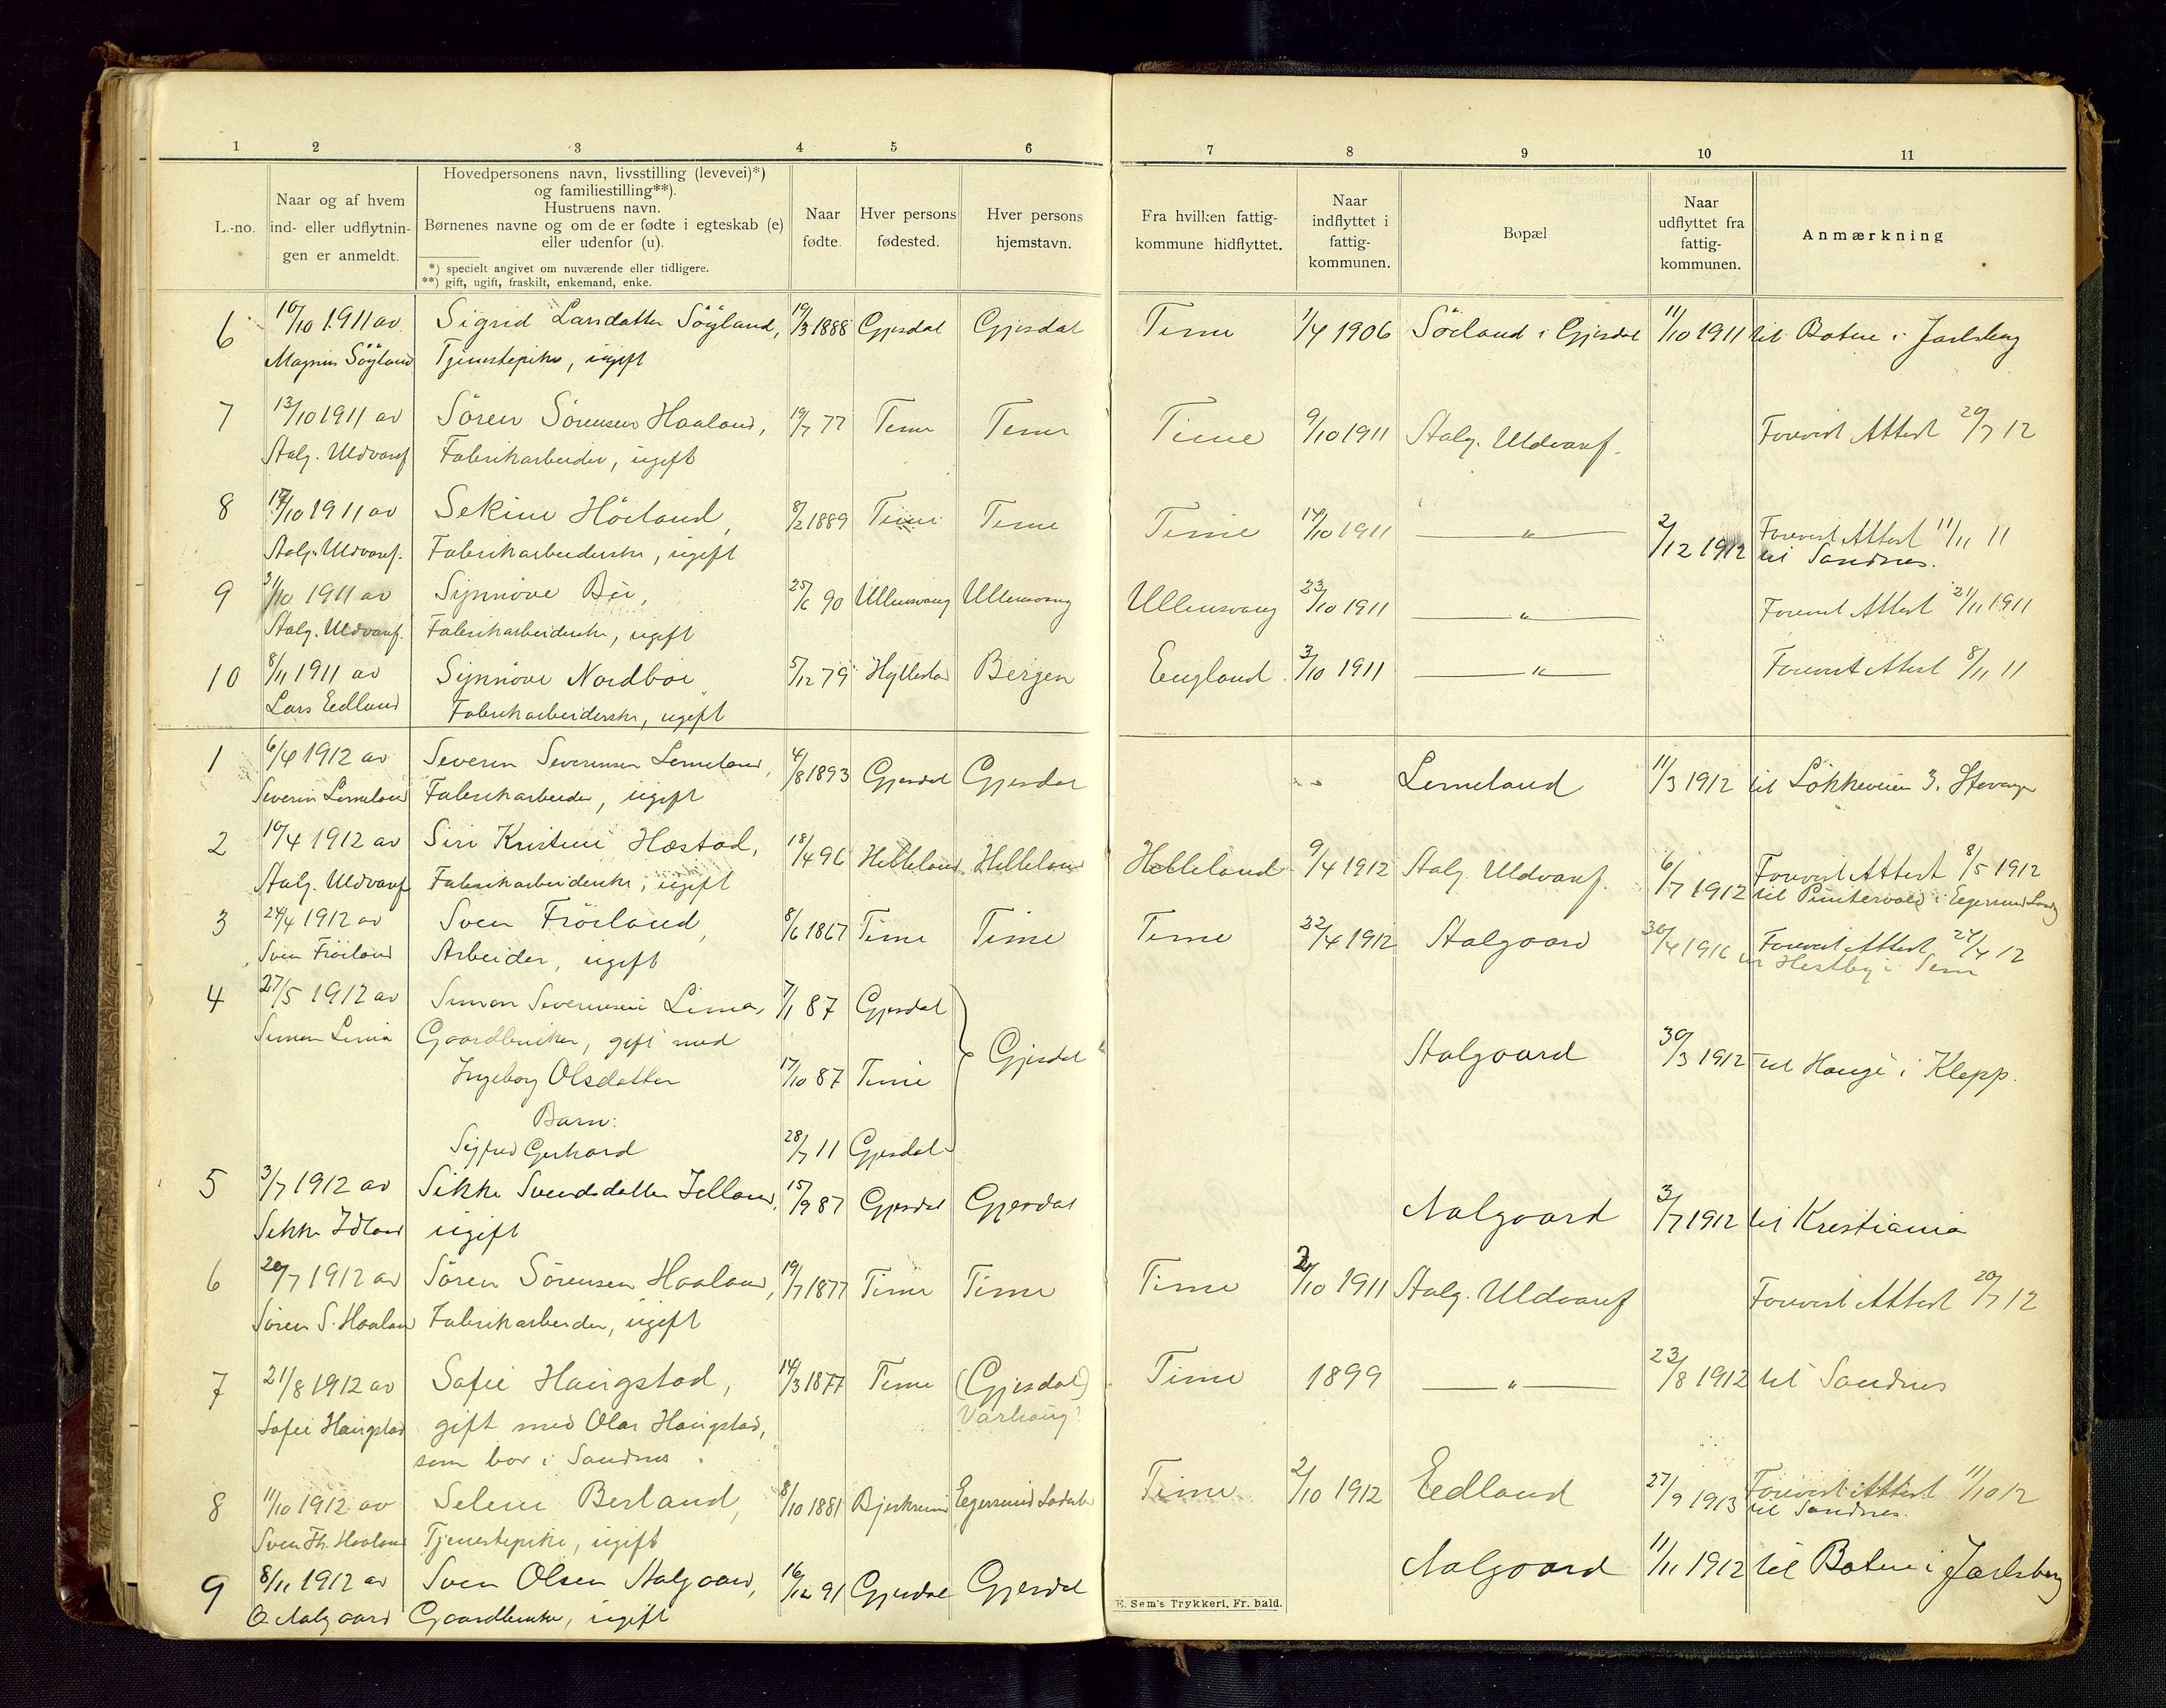 1 2 3 4 5 6 7 8 9 10 11
L.-no.
Naar og af hvem
ind- eller udflytnin-
gen er anmeldt.
Hovedpersonens navn, livsstilling (levevei)*)
og familiestilling**).
Hustruens navn.
Børnenes navne og om de er fødte i egteskab (e)
eller udenfor (u).
*) specielt angivet om nuværende eller tidligere.
**) gift, ugift, fraskilt, enkemand, enke.
Naar
fødte.
Hver persons
fødested.
Hver persons
hjemstavn.
Fra hvilken fattig-
kommune hidflyttet.
Naar
indflyttet i
fattig-
kommunen.
Bopæl
Naar
udflyttet fra
fattig-
kommunen.
Anmærkning
6 10/10 1911 av Sigrid Larsdatter Söyland, 19/3 1888 Gjesdal Gjesdal Time 1/4 1906 Söiland i Gjesdal 11/10 1911 til Botne i Jarlsberg
Magnus Söyland Tjenestepike, ugift
7 13/10 1911 av Sören Sörensen Haaland, 19/7 77 Time Time Time 9/10 1911 Aalg. Uldvaref. Forevist Attest 20/7 12
Aalg. Uldvaref Fabrikarbeider, ugift
8 17/10 1911 av Sekine Höiland, 8/2 1889 Time Time Time 14/10 1911 — " — 2/12 1912 Forevist Attest 11/11 11
til Sandnes.
Aalg. Uldvaref. Fabrikarbeiderske, ugift
9 31/10 1911 av Synnöve Bu, 25/6 90 Ullensvang Ullensvang Ullensvang 23/10 1911 — " — Forevist Attest 21/11 1911
Aalg. Uldvaref. Fabrikarbeiderske, ugift
10 8/11 1911 av Synnöve Nordböe 5/12 79 Hyllestad Bergen England 3/10 1911 — " — Forevist Attest 8/11 11
Lars Eedland Fabrikarbeiderske, ugift
1 6/4 1912 av Severin Severinsen Limeland, 4/8 1893 Gjesdal Gjesdal Limeland 11/3 1912 til Lökkeveien 3, Stavanger
Severin Limeland Fabrikarbeider, ugift
2 10/4 1912 av Siri Kristine Hæstad, 18/4 96 Helleland Helleland Helleland 9/4 1912 Aalg. Uldvaref. 6/7 1912 Forevist Attest 8/5 1912
til Puntervold i Egersund Landsg
Aalg. Uldvaref Fabrikarbeiderske, ugift
3 24/4 1912 av Sven Fröiland, 8/6 1867 Time Time Time 22/4 1912 Aalgaard 30/4 1916 Forevist Attest 24/4 12
til Hestby i Sem
Sven Fröiland Arbeider, ugift
4 27/5 1912 av Simon Severinsen Lima, 7/1 87 Gjesdal
Simon Lima Gaardbruker, gift med Gjesdal Aalgaard 30/3 1912 til Hauge i Klepp.
Ingeborg Olsdatter 17/10 87 Time
Barn:
Sigfred Gerhard 28/7 11 Gjesdal
5 3/7 1912 av Sikke Svendsdatter Idland, 15/9 87 Gjesdal Gjesdal Aalgaard 3/7 1912 til Kristiania
Sikke Idland ugift
6 20/7 1912 av Sören Sörensen Haaland, 19/7 1877 Time Time Time 2/10 1911 Aalg. Uldvaref Forevist Attest 20/7 12
Sören S. Haaland Fabrikarbeider, ugift
7 21/8 1912 av Sofie Haugstad, 14/3 1877 Time (Gjesdal) Time 1899 — " — 23/8 1912 til Sandnes
Varhaug?
Sofie Haugstad gift med Olav Haugstad,
som bor i Sandnes.
8 11/10 1912 av Seline Berland, 8/10 1881 Bjerkreim Egersund Landsg Time 2/10 1912 Eedland 27/9 1913 Forevist Attest 11/10 12
til Sandnes.
Sven Th. Haaland Tjenestepike, ugift
9 8/11 1912 av Sven Olsen Aalgaard, 16/12 91 Gjesdal Gjesdal Aalgaard 11/11 1912 til Botne i Jarlsberg
O Aalgaard Gaardbruker, ugift
E. Sem's Trykkeri, Fr. hald.